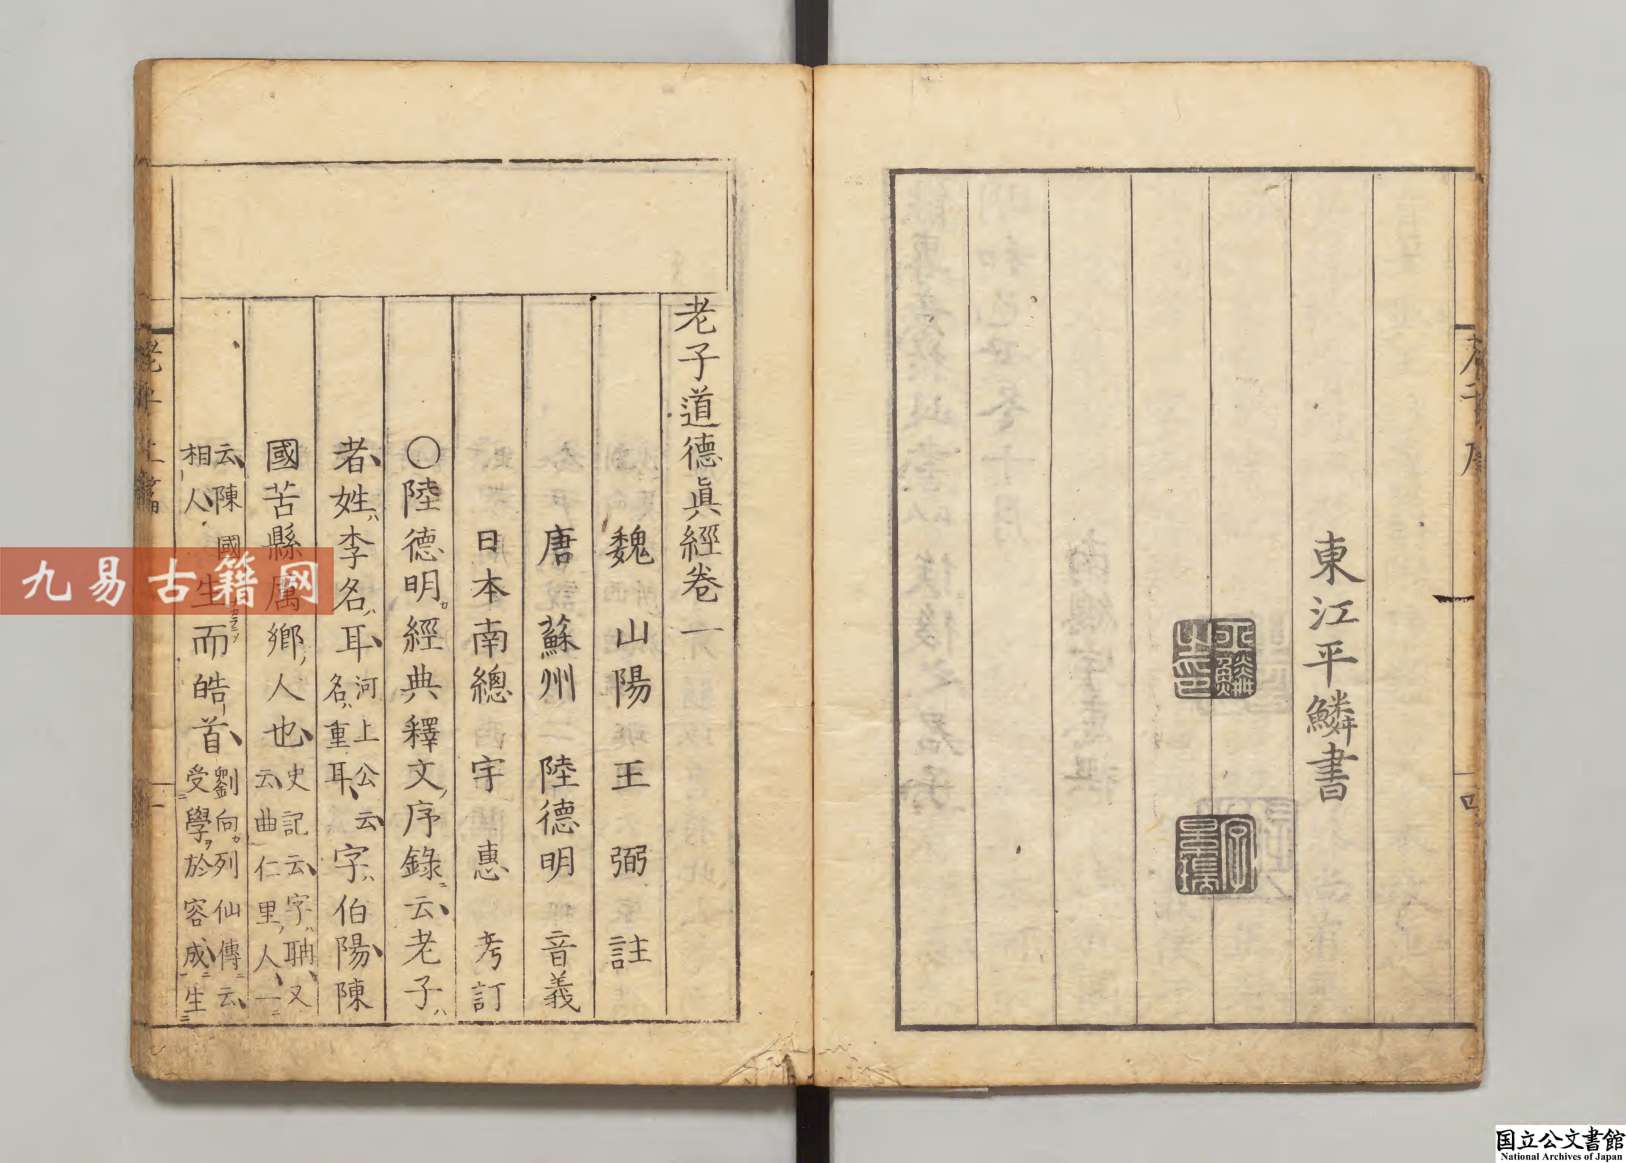 東江平鱗書
老子道德眞經卷一
魏 山陽 王 弼 註
唐 蘇州 陸德明 音義
日本南總 宇 惠 考訂
○陸德明經典釋文序錄云老子
者姓李名耳河上公云名重耳字伯陽陳
國苦縣厲鄉人也史記云字聃又云曲仁里人一
云陳國相人生而皓首劉向列仙傳云受學於容成生
九易古籍网
国立公文書館
National Archives of Japan